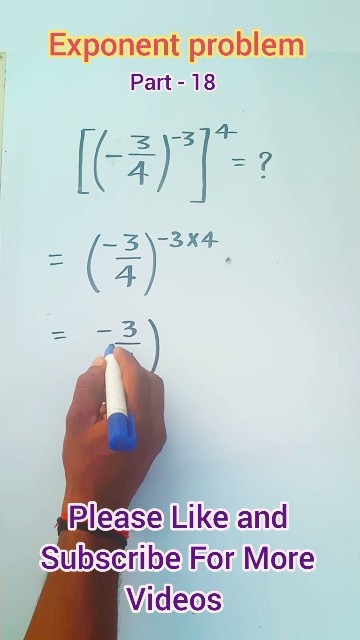 Exponent problem
Part - 18
[(-3/4)^-3]^4 = ?
= (-3/4)^-3×4
= -3)
Please Like and
Subscribe For More
Videos